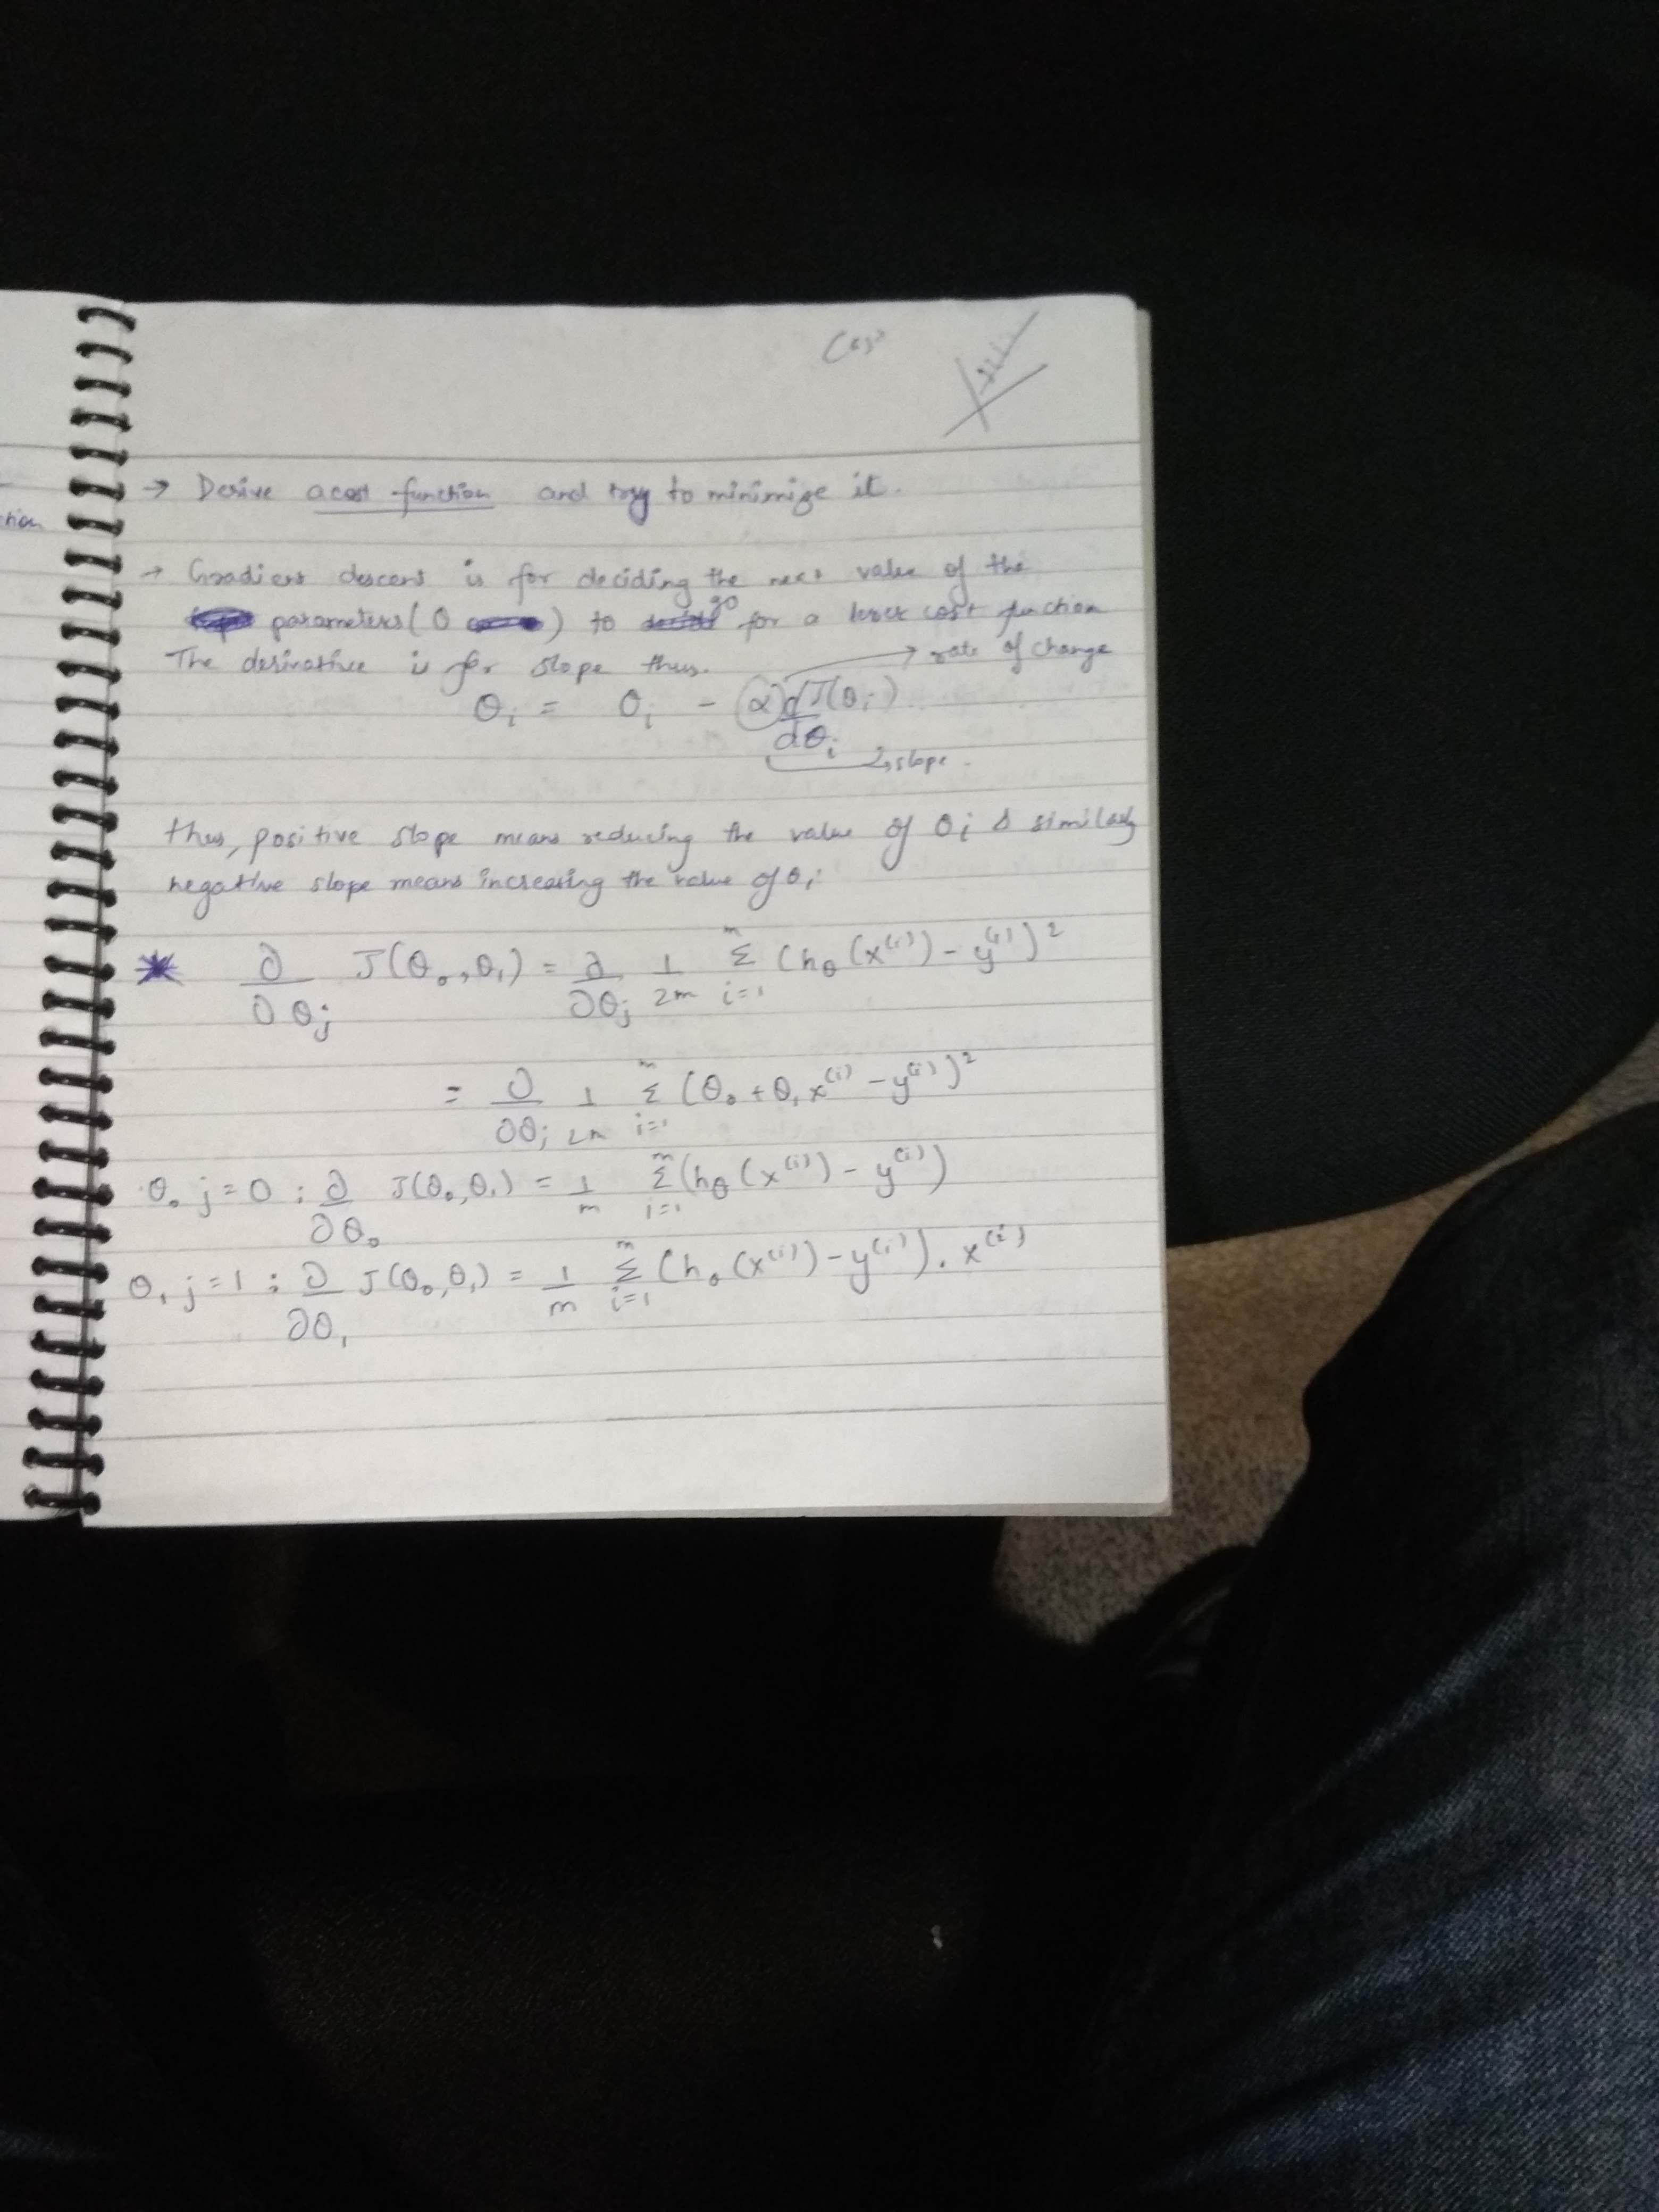 ction
→ Derive a cost function and try to minimize it.
→ Gradient descent is for deciding the next value of the
parameters (θ ) to go for a lower cost function
The derivative is for slope thus. → rate of change
θi = θi - α dJ(θi)
dθi
↳ slope.
thus, positive slope means reducing the value of θi & similarly
negative slope means increasing the value of θi
* ∂/∂θj J(θ0,θ1) = ∂/∂θj 1/2m Σ_{i=1}^{m} (hθ(x^(i)) - y^(i))^2
= ∂/∂θj 1/2m Σ_{i=1}^{m} (θ0 + θ1 x^(i) - y^(i))^2
θ0 j=0 : ∂/∂θ0 J(θ0,θ1) = 1/m Σ_{i=1}^{m} (hθ(x^(i)) - y^(i))
θ1 j=1 : ∂/∂θ1 J(θ0,θ1) = 1/m Σ_{i=1}^{m} (hθ(x^(i)) - y^(i)) . x^(i)